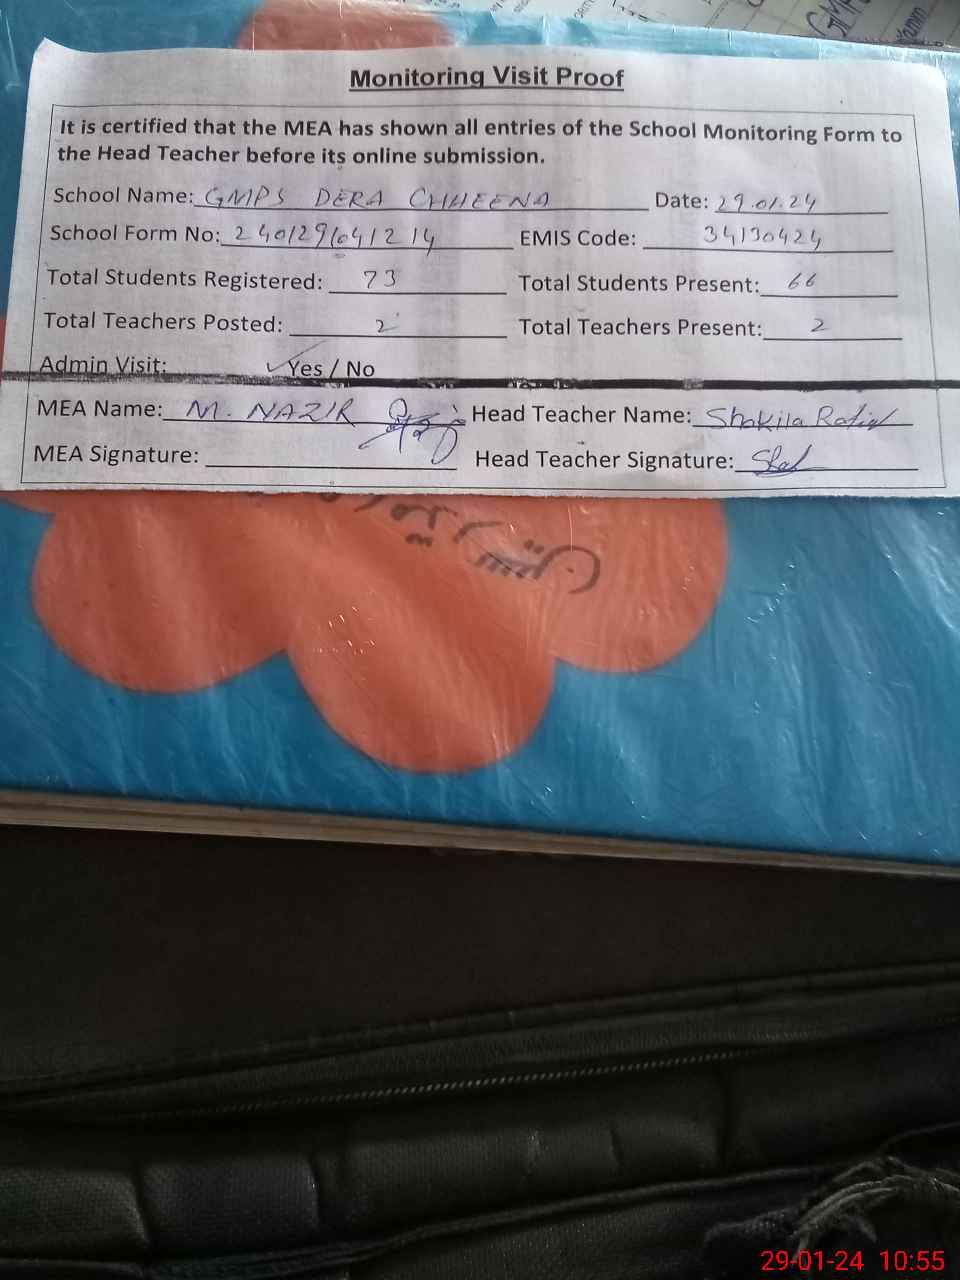 Monitoring Visit Proof
It is certified that the MEA has shown all entries of the School Monitoring Form to
the Head Teacher before its online submission.
School Name: GMPS DERA CHHEENA Date: 29.01.24
School Form No: 240129641214 EMIS Code: 34130424
Total Students Registered: 73 Total Students Present: 66
Total Teachers Posted: 2 Total Teachers Present: 2
Admin Visit: Yes / No
MEA Name: M. NAZIR Head Teacher Name: Shakila
MEA Signature: Head Teacher Signature:
29-01-24 10:55